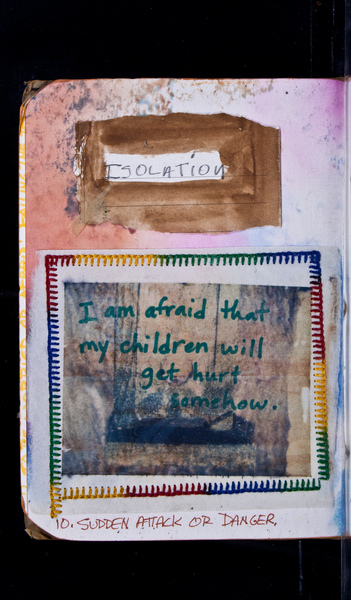 ISOLATION
I am afraid that
my children will
get hurt
somehow.
10. SUDDEN ATTACK OR DANGER.